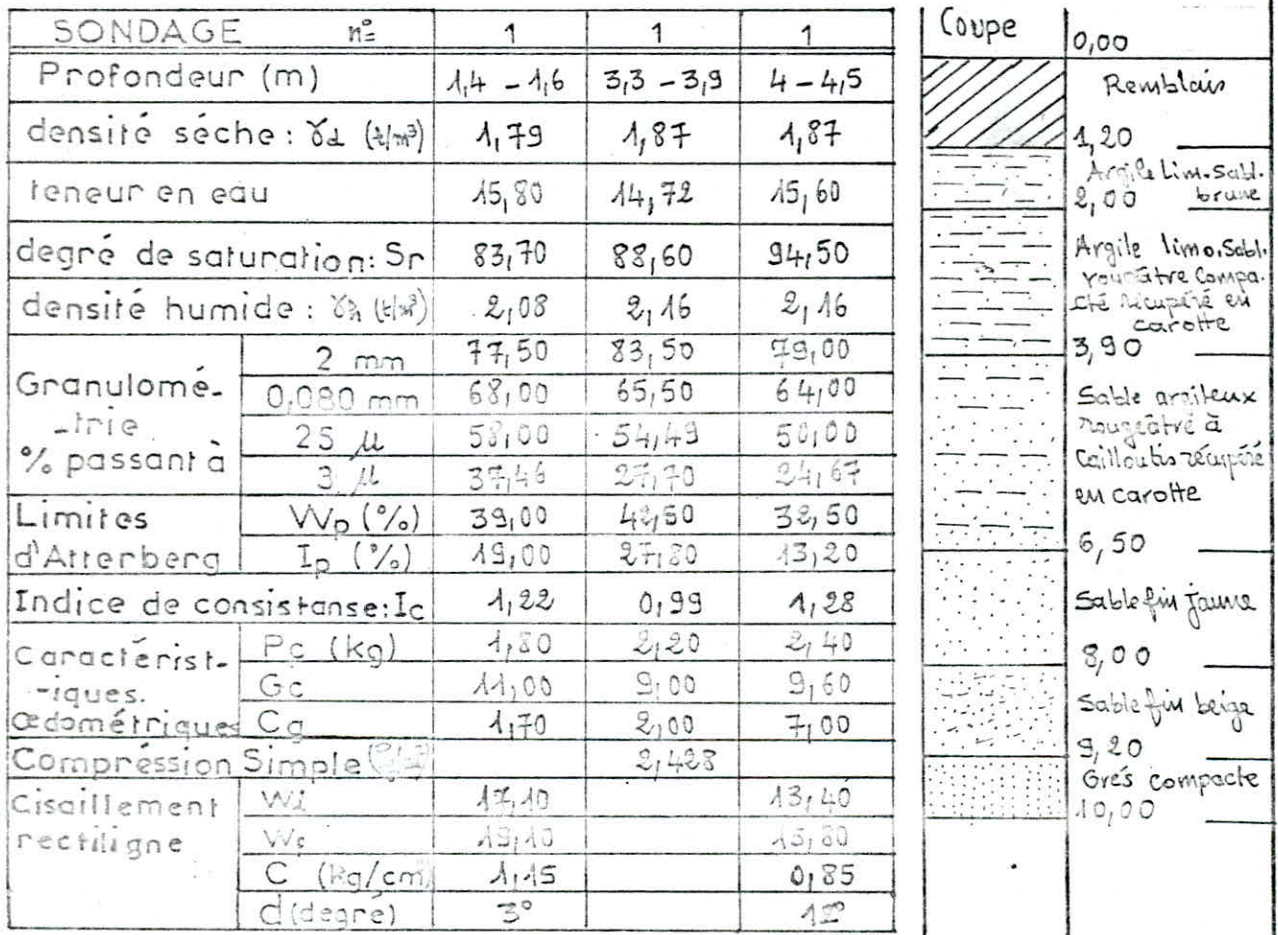 SONDAGE n° 1 1 1
Profondeur (m) 1,4 - 1,6 3,3 - 3,9 4 - 4,5
densité séche : γd (t/m³) 1,79 1,87 1,87
teneur en eau 15,80 14,72 15,60
degré de saturation: Sr 83,70 88,60 94,50
densité humide : γh (t/m³) 2,08 2,16 2,16
Granulomé-
-trie
% passant à
2 mm 77,50 83,50 79,00
0,080 mm 68,00 65,50 64,00
25 µ 58,00 54,49 50,00
3 µ 37,46 27,70 24,67
Limites
d'Atterberg
Wp (%) 39,00 42,50 32,50
Ip (%) 19,00 27,80 13,20
Indice de consistanse: Ic 1,22 0,99 1,28
Caractérist-
-iques.
Œdométriques
Pc (kg) 1,80 2,20 2,40
Gc 11,00 9,00 9,60
Cg 1,70 2,00 7,00
Compréssion Simple 2,428
Cisaillement
rectiligne
Wi 17,10 13,40
19,10 15,80
C (kg/cm) 1,15 0,85
d (degré) 3° 12°
Coupe
0,00
Remblais
1,20
Argile Lim. Sabl.
brune
2,00
Argile limo. Sabl.
rougâtre Compa-
cté récupéré en
carotte
3,90
Sable argileux
rougeâtre à
Cailloutis récupéré
en carotte
6,50
Sable fin jaune
8,00
Sable fin beige
9,20
Grés compacte
10,00